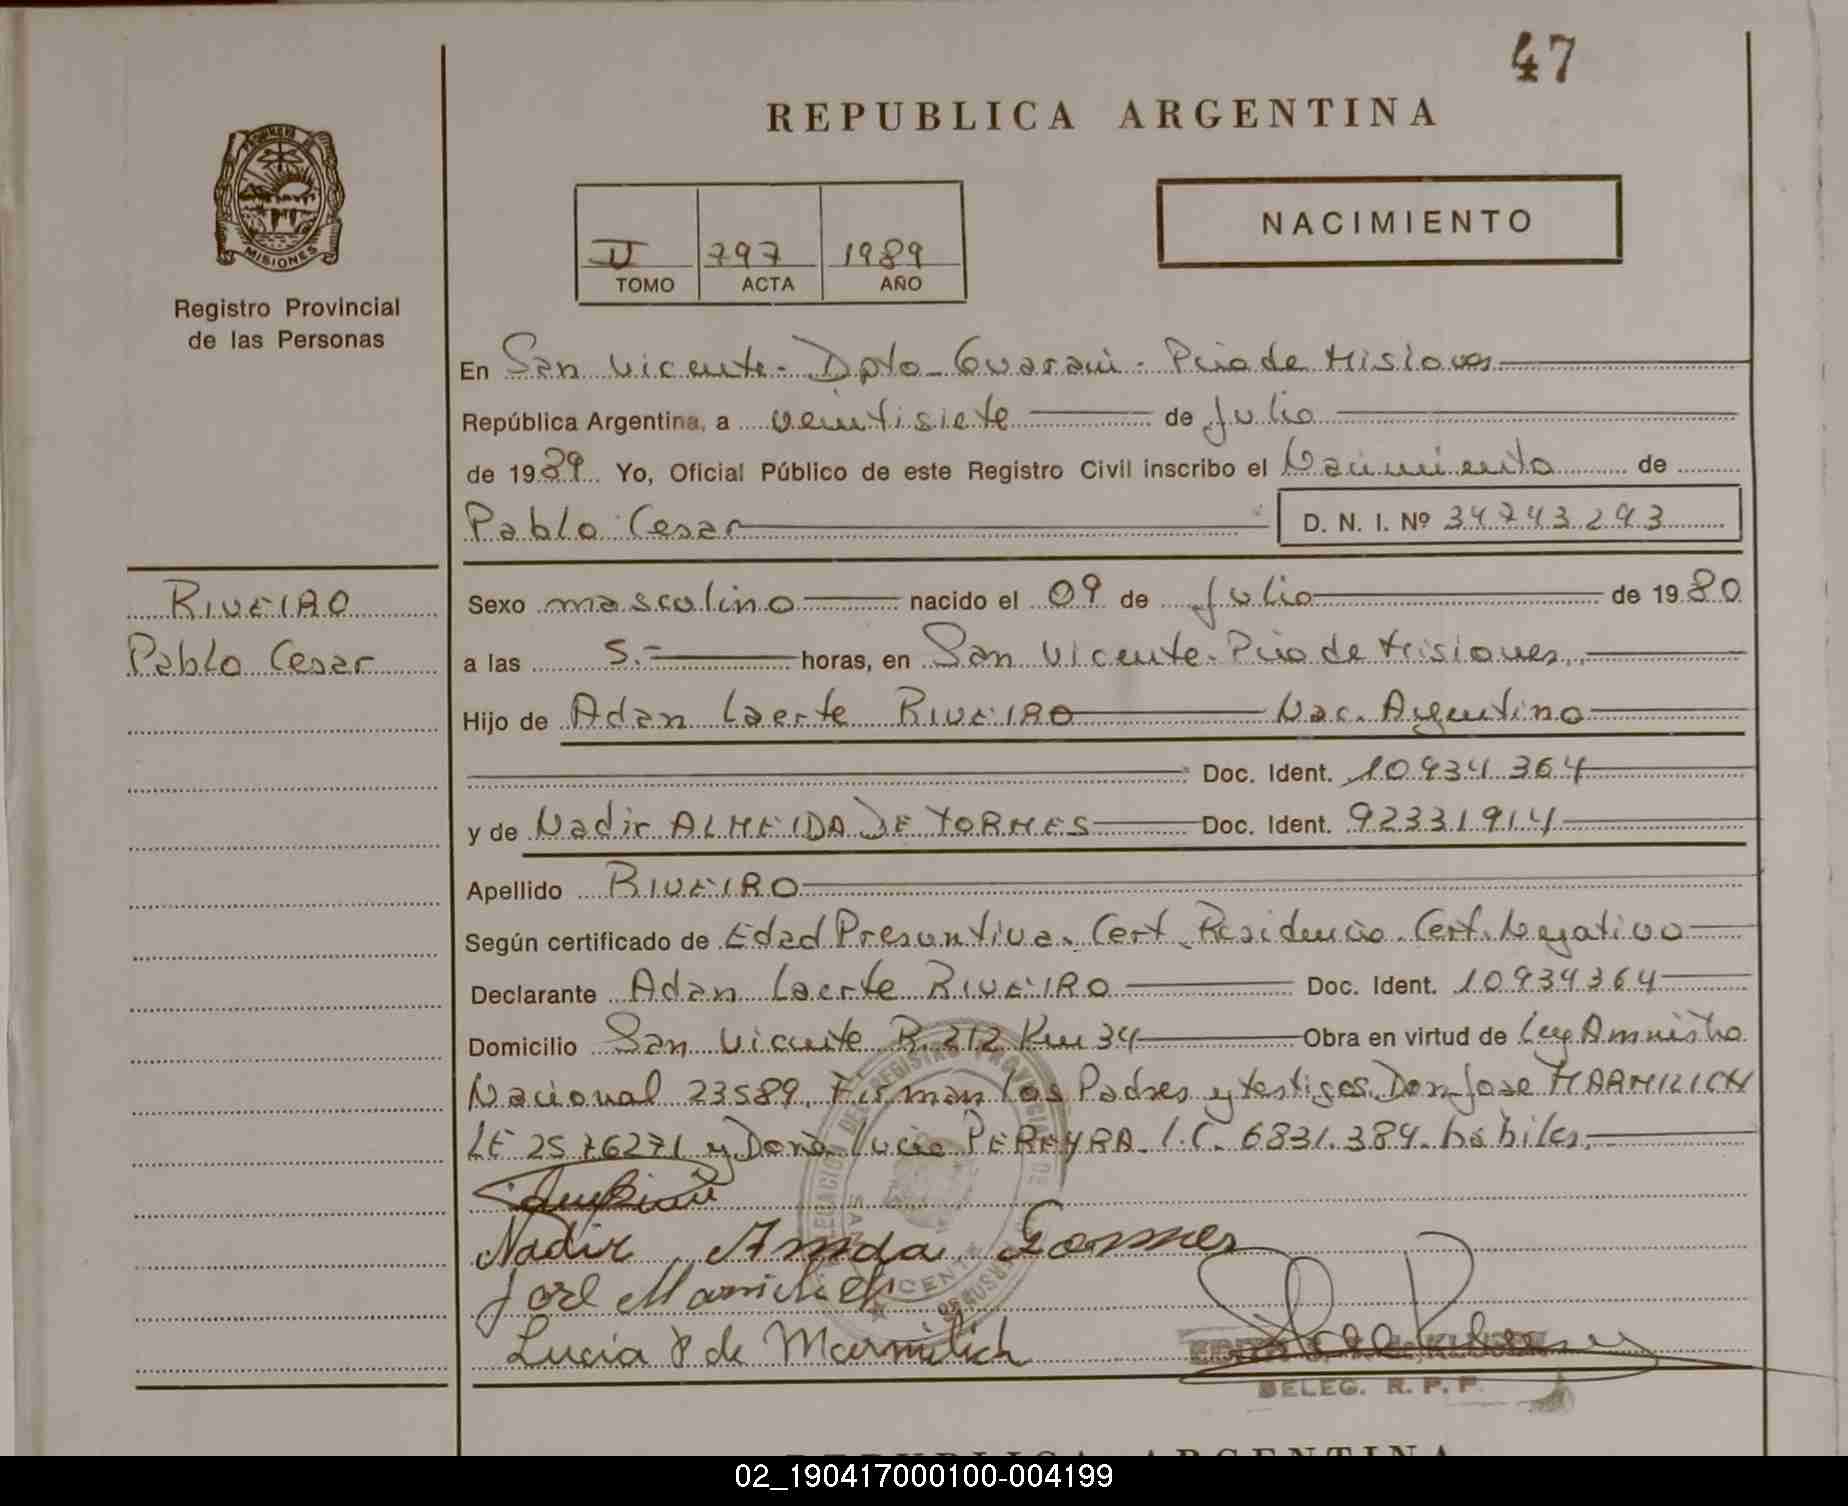 47
REPUBLICA ARGENTINA
MISIONES
Registro Provincial
de las Personas
II 797 1989
TOMO ACTA AÑO
NACIMIENTO
En San Vicente - Dpto - Guarani - Pcia de Misiones
República Argentina, a veintisiete de Julio
de 1989 Yo, Oficial Público de este Registro Civil inscribo el Nacimiento de
Pablo Cesar D. N. I. Nº 34743293
RIVEIRO
Pablo Cesar
Sexo masculino nacido el 09 de Julio de 1980
a las 5.- horas, en San Vicente - Pcia de Misiones
Hijo de Adan Laerte RIVEIRO Nac. Argentino
Doc. Ident. 10934364
y de Nadir ALMEIDA DE TORMES Doc. Ident. 92331914
Apellido RIVEIRO
Según certificado de Edad Presuntiva. Cert. Residencia. Cert. Negativo
Declarante Adan Laerte RIVEIRO Doc. Ident. 10934364
Domicilio San Vicente R. 212 Km 34 Obra en virtud de Ley Amnistia
Nacional 23589. Firman los Padres y testigos Don Jose MARMILICH
LE 2576271 y Doña Lucia PEREYRA L.C. 6831.384. hábiles.
Nadir Gormes
José Marmilich
Lucia P de Marmilich
DELEG. R. P. P.
REPUBLICA ARGENTINA
02_190417000100-004199